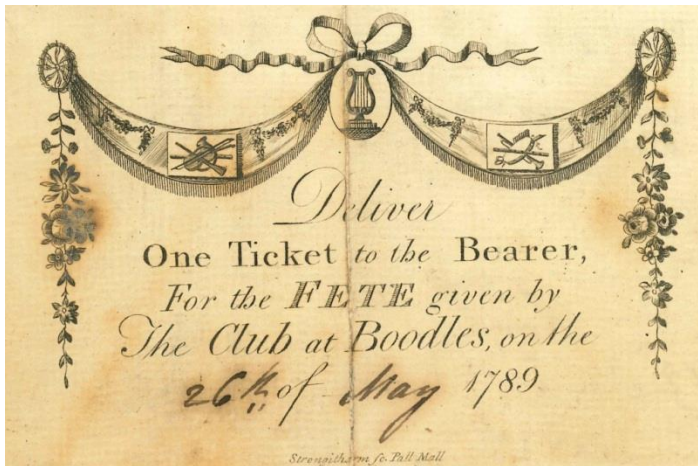 Deliver
One Ticket to the Bearer,
For the FETE given by
The Club at Boodles, on the
26th of May 1789
Strongitharm sc. Pall Mall